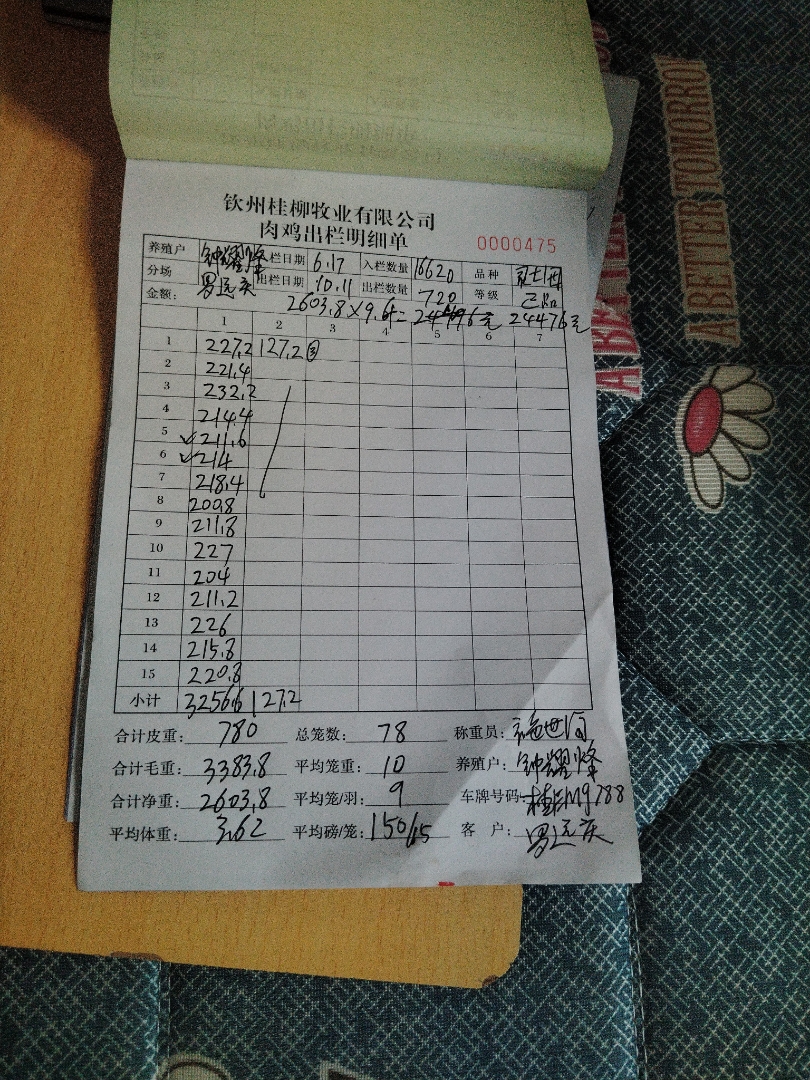 钦州桂柳牧业有限公司
肉鸡出栏明细单
0000475
养殖户 钟耀峰 栏日期 6.17 入栏数量 16620 品种
分场 出栏日期 10.11 出栏数量 720 等级
金额: 2603.8×9.4= 24476元
1 2 3 4 5 6 7
1 227.2 127.2 ③
2 221.4
3 232.2
4 214.4
5 ✓211.6
6 ✓214
7 218.4
8 200.8
9 211.8
10 227
11 204
12 211.2
13 226
14 215.8
15 220.8
小计 3256.6 127.2
合计皮重: 780 总笼数: 78 称重员:
合计毛重: 3383.8 平均笼重: 10 养殖户: 钟耀峰
合计净重: 2603.8 平均笼/羽: 9 车牌号码: M9788
平均体重: 3.62 平均磅/笼: 150/15 客 户:
A BETTER TOMORRO
A BETTER